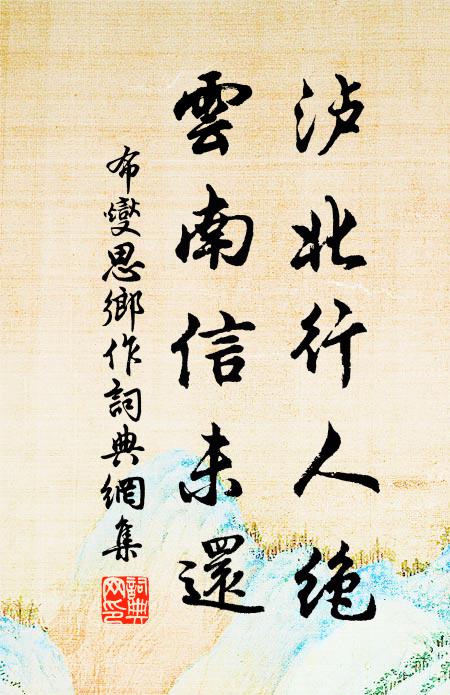 泸北行人絶
雲南信未還
布燮思鄉作詞典網集
詞典网印